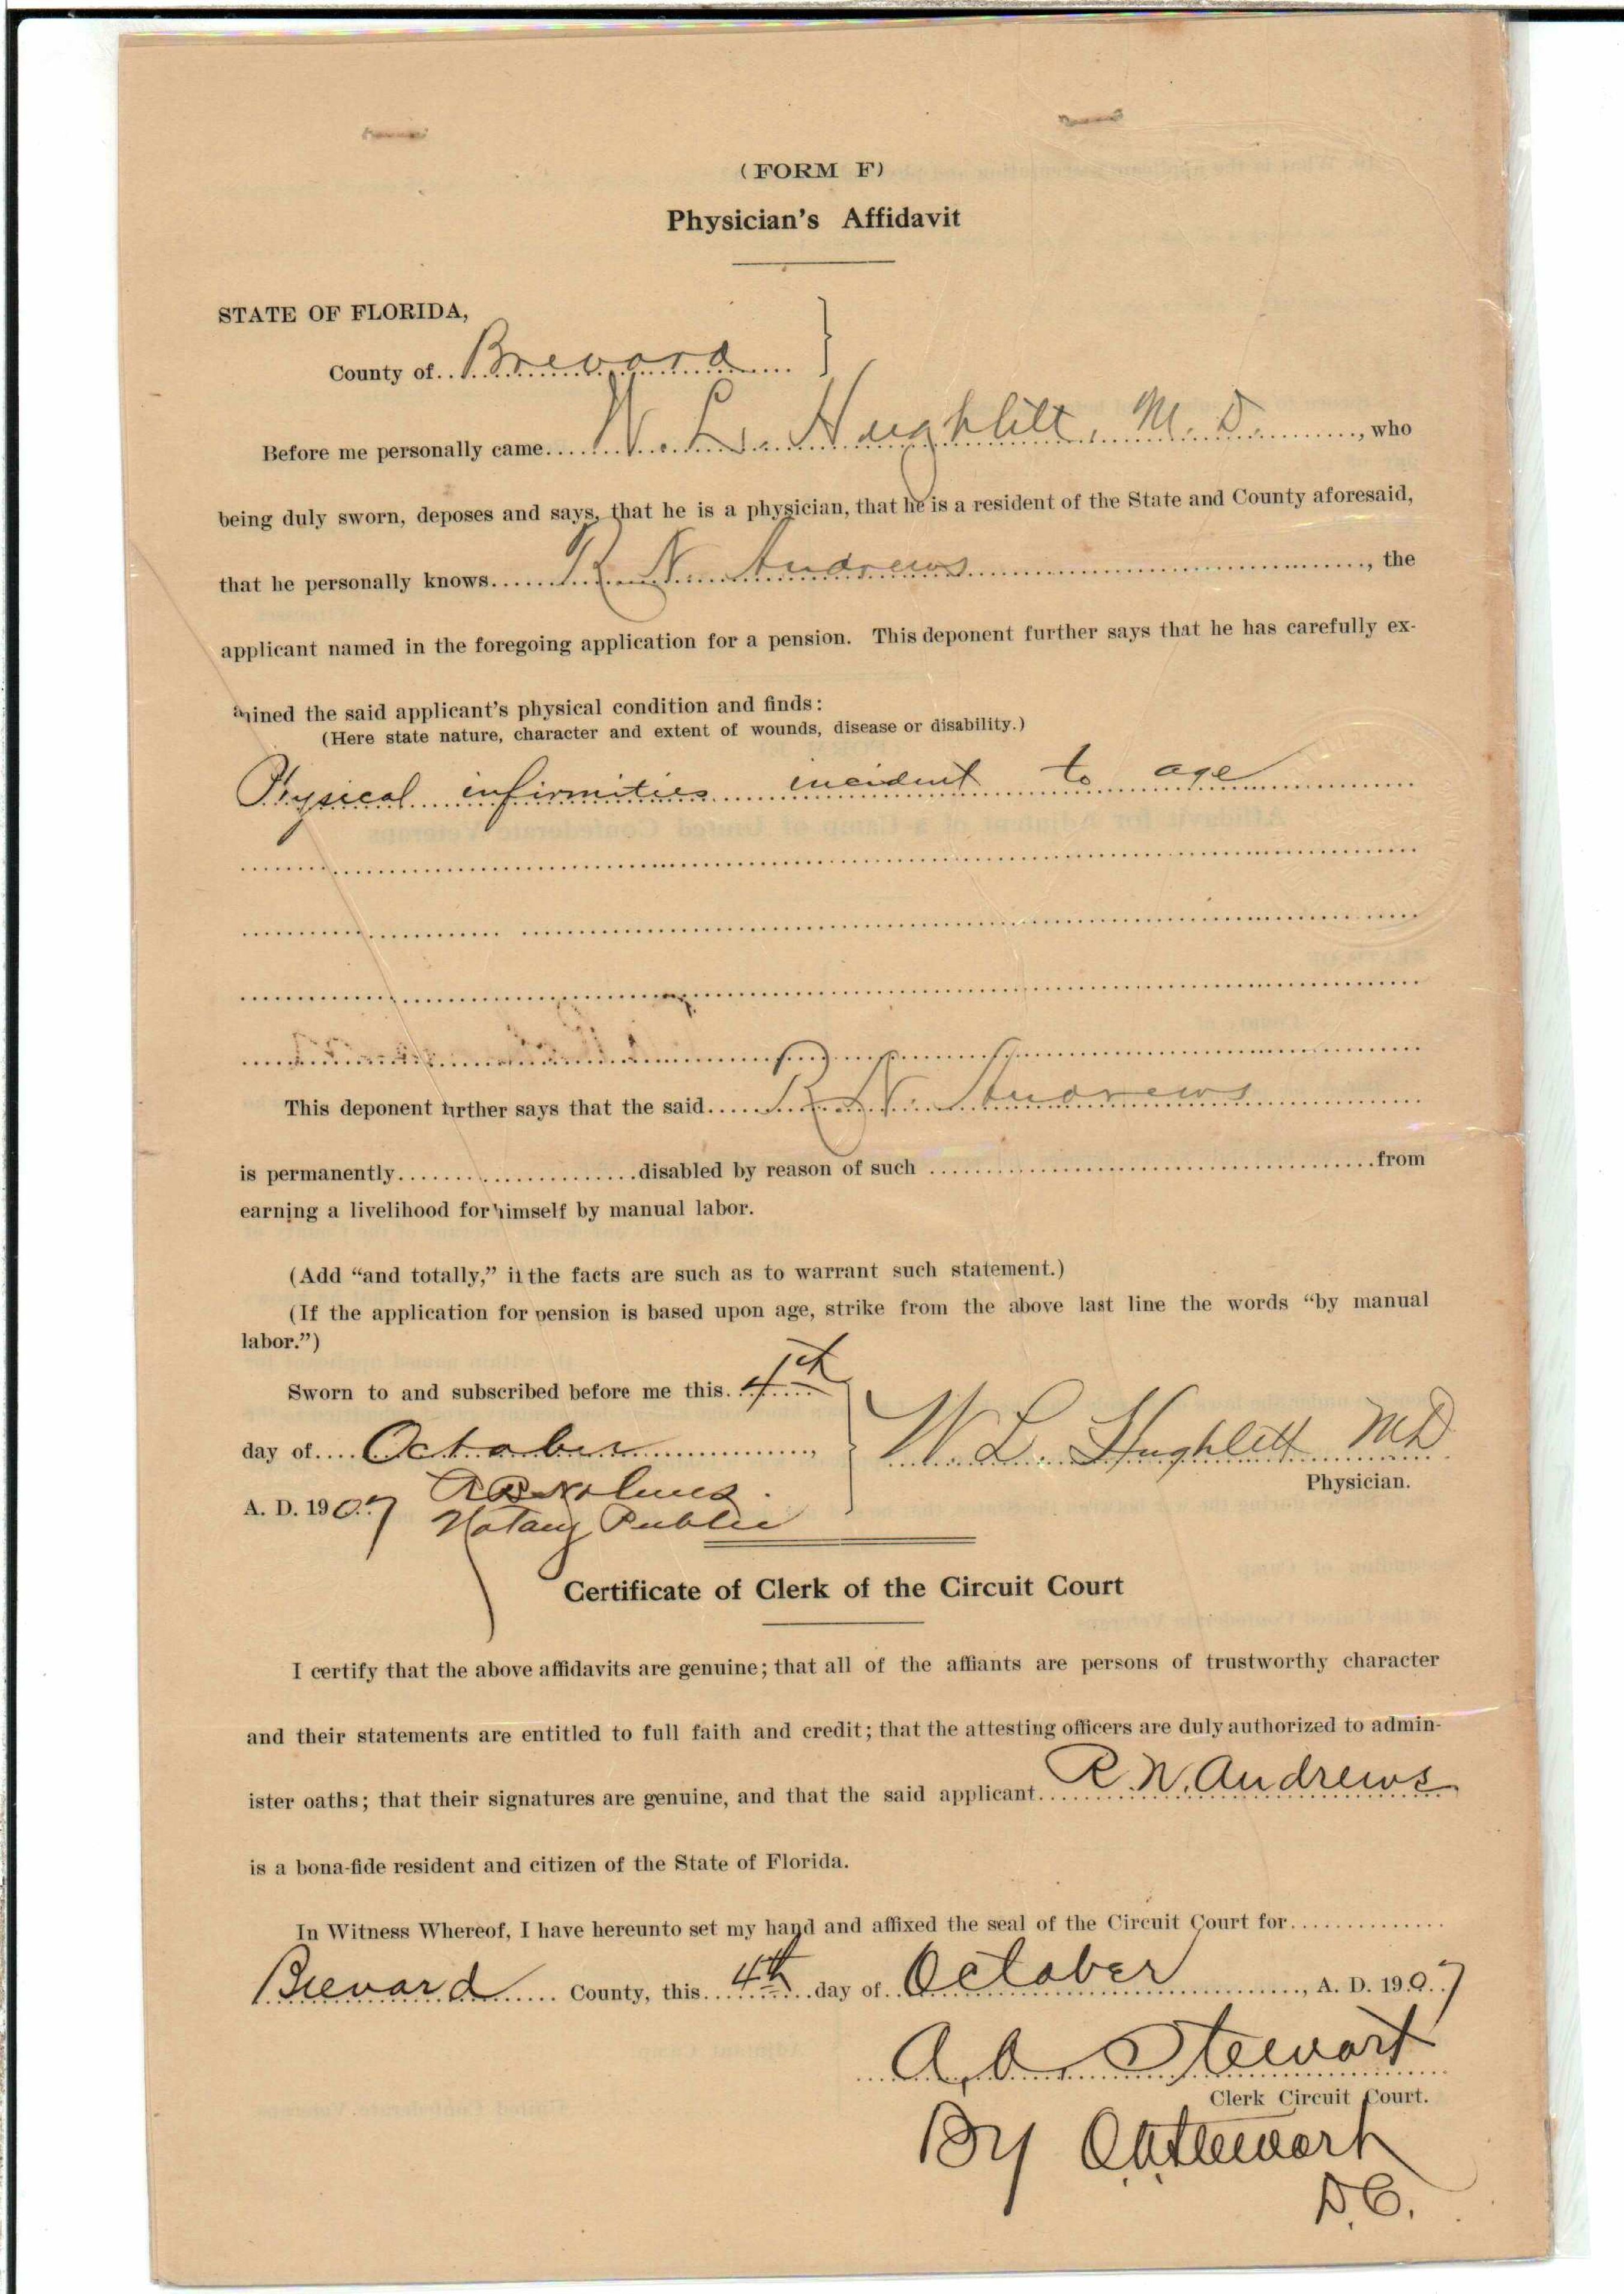 (FORM F)
Physician's Affidavit
STATE OF FLORIDA,
County of Brevard
Before me personally came W. L. Hughlett, M. D., who
being duly sworn, deposes and says, that he is a physician, that he is a resident of the State and County aforesaid,
that he personally knows R. N. Andrews, the
applicant named in the foregoing application for a pension. This deponent further says that he has carefully ex-
amined the said applicant's physical condition and finds:
(Here state nature, character and extent of wounds, disease or disability.)
Physical infirmities incident to age
This deponent further says that the said R. N. Andrews
is permanently disabled by reason of such from
earning a livelihood for himself by manual labor.
(Add "and totally," if the facts are such as to warrant such statement.)
(If the application for pension is based upon age, strike from the above last line the words "by manual
labor.")
Sworn to and subscribed before me this 4th
day of October, W. L. Hughlett MD
Physician.
A. D. 1907
Notary Public
Certificate of Clerk of the Circuit Court
I certify that the above affidavits are genuine; that all of the affiants are persons of trustworthy character
and their statements are entitled to full faith and credit; that the attesting officers are duly authorized to admin-
ister oaths; that their signatures are genuine, and that the said applicant R. N. Andrews
is a bona-fide resident and citizen of the State of Florida.
In Witness Whereof, I have hereunto set my hand and affixed the seal of the Circuit Court for
Brevard County, this 4th day of October, A. D. 1907
A. A. Stewart
Clerk Circuit Court.
By Stewart
D. C.